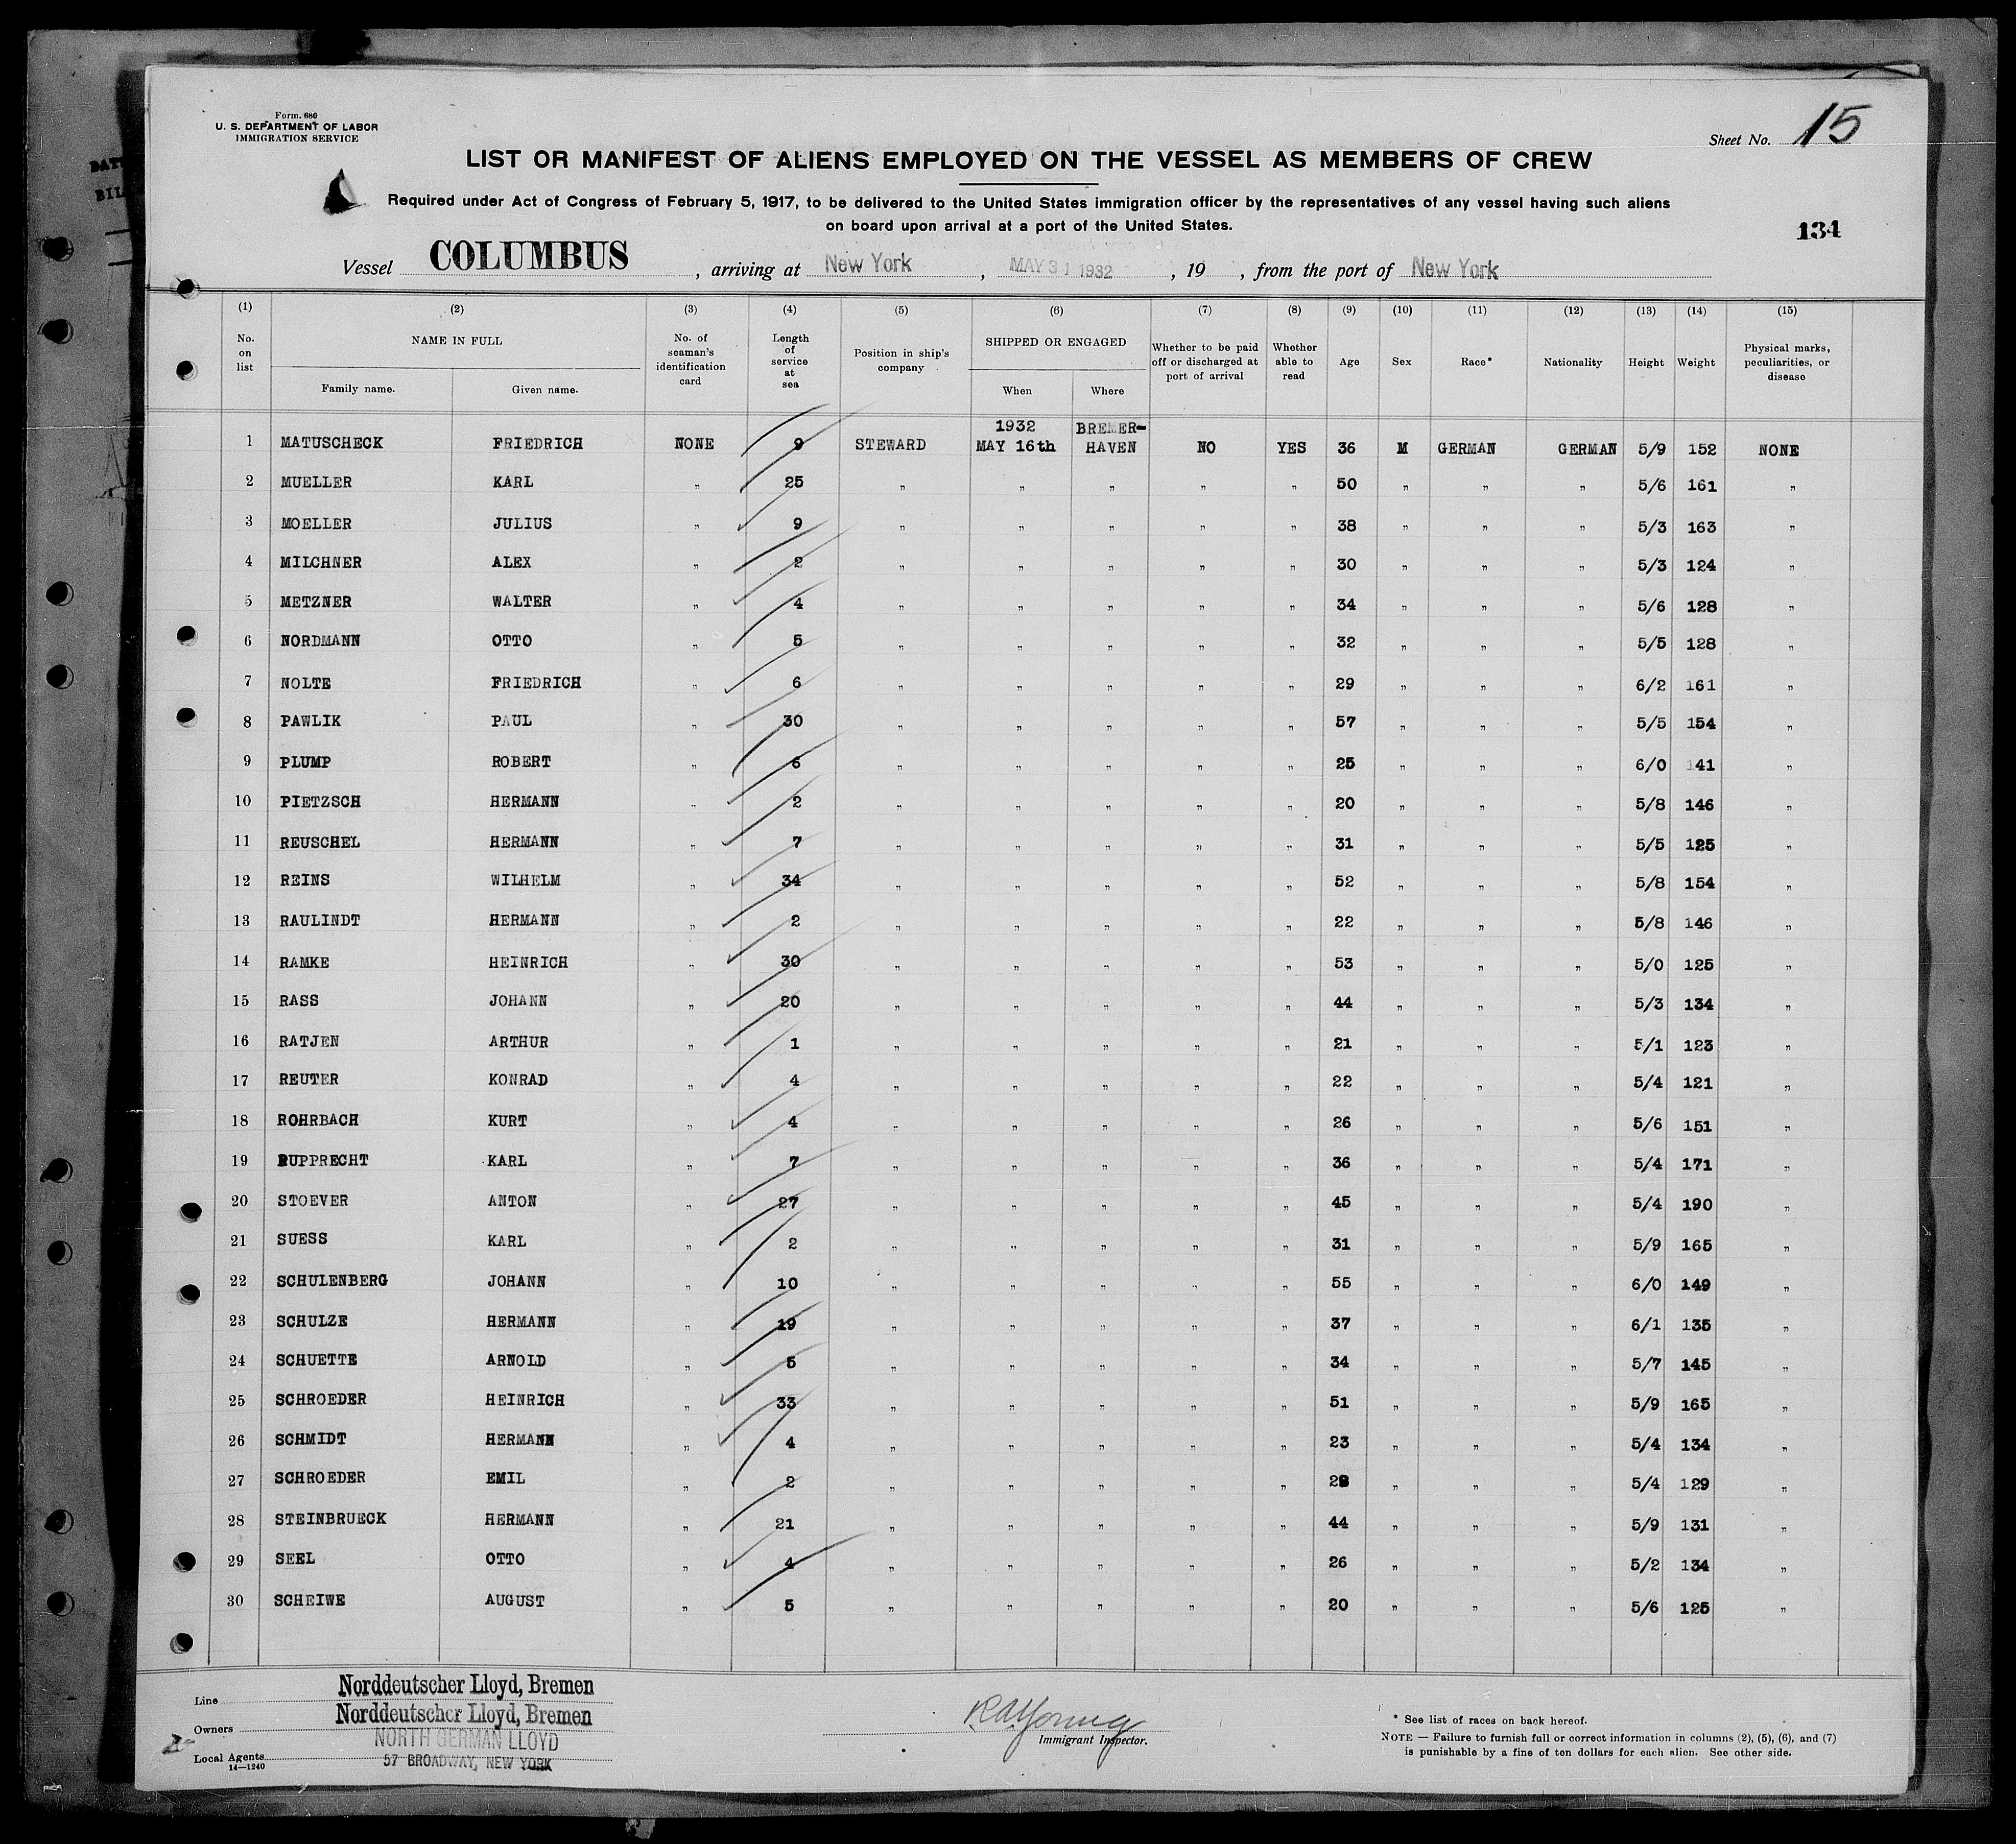 Form. 680
U. S. DEPARTMENT OF LABOR
IMMIGRATION SERVICE
Sheet No. 15
LIST OR MANIFEST OF ALIENS EMPLOYED ON THE VESSEL AS MEMBERS OF CREW
Required under Act of Congress of February 5, 1917, to be delivered to the United States immigration officer by the representatives of any vessel having such aliens
on board upon arrival at a port of the United States.
134
Vessel COLUMBUS, arriving at New York, MAY 31 1932, 19 , from the port of New York
(1) (2) (3) (4) (5) (6) (7) (8) (9) (10) (11) (12) (13) (14) (15)
No. on list NAME IN FULL Family name. Given name. No. of seaman's identification card Length of service at sea Position in ship's company SHIPPED OR ENGAGED When Where Whether to be paid off or discharged at port of arrival Whether able to read Age Sex Race* Nationality Height Weight Physical marks, peculiarities, or disease
1 MATUSCHECK FRIEDRICH NONE 9 STEWARD 1932 MAY 16th BREMER-HAVEN NO YES 36 M GERMAN GERMAN 5/9 152 NONE
2 MUELLER KARL " 25 " " " " " 50 " " " 5/6 161 "
3 MOELLER JULIUS " 9 " " " " " 38 " " " 5/3 163 "
4 MILCHNER ALEX " 2 " " " " " 30 " " " 5/3 124 "
5 METZNER WALTER " 4 " " " " " 34 " " " 5/6 128 "
6 NORDMANN OTTO " 5 " " " " " 32 " " " 5/5 128 "
7 NOLTE FRIEDRICH " 6 " " " " " 29 " " " 6/2 161 "
8 PAWLIK PAUL " 30 " " " " " 57 " " " 5/5 154 "
9 PLUMP ROBERT " 6 " " " " " 25 " " " 6/0 141 "
10 PIETZSCH HERMANN " 2 " " " " " 20 " " " 5/8 146 "
11 REUSCHEL HERMANN " 7 " " " " " 31 " " " 5/5 125 "
12 REINS WILHELM " 34 " " " " " 52 " " " 5/8 154 "
13 RAULINDT HERMANN " 2 " " " " " 22 " " " 5/8 146 "
14 RAMKE HEINRICH " 30 " " " " " 53 " " " 5/0 125 "
15 RASS JOHANN " 20 " " " " " 44 " " " 5/3 134 "
16 RATJEN ARTHUR " 1 " " " " " 21 " " " 5/1 123 "
17 REUTER KONRAD " 4 " " " " " 22 " " " 5/4 121 "
18 ROHRBACH KURT " 4 " " " " " 26 " " " 5/6 151 "
19 RUPPRECHT KARL " 7 " " " " " 36 " " " 5/4 171 "
20 STOEVER ANTON " 27 " " " " " 45 " " " 5/4 190 "
21 SUESS KARL " 2 " " " " " 31 " " " 5/9 165 "
22 SCHULENBERG JOHANN " 10 " " " " " 55 " " " 6/0 149 "
23 SCHULZE HERMANN " 19 " " " " " 37 " " " 6/1 135 "
24 SCHUETTE ARNOLD " 5 " " " " " 34 " " " 5/7 145 "
25 SCHROEDER HEINRICH " 33 " " " " " 51 " " " 5/9 165 "
26 SCHMIDT HERMANN " 4 " " " " " 23 " " " 5/4 134 "
27 SCHROEDER EMIL " 2 " " " " " 28 " " " 5/4 129 "
28 STEINBRUECK HERMANN " 21 " " " " " 44 " " " 5/9 131 "
29 SEEL OTTO " 4 " " " " " 26 " " " 5/2 134 "
30 SCHEIWE AUGUST " 5 " " " " " 20 " " " 5/6 125 "
Line Norddeutscher Lloyd, Bremen
Owners Norddeutscher Lloyd, Bremen
NORTH GERMAN LLOYD
Local Agents 57 BROADWAY, NEW YORK
14—1240
R A Young
Immigrant Inspector.
* See list of races on back hereof.
NOTE — Failure to furnish full or correct information in columns (2), (5), (6), and (7)
is punishable by a fine of ten dollars for each alien. See other side.